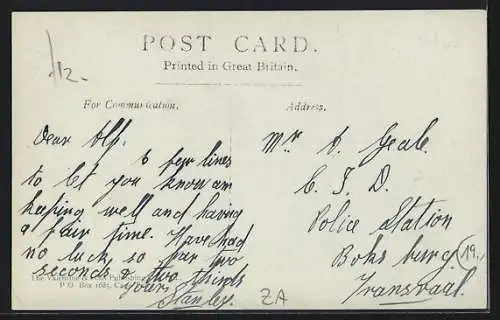 /2-
POST CARD.
Printed in Great Britain.
For Communication.
Address.
Dear Alf.
a few lines
to let you know am
keeping well and having
a fair time. Have had
no luck so far two
seconds & two thirds
yours
Stanley.
The Valentine & Sons Publishing
P.O. Box 1685, Cape
Mr. D. Geale.
C. I. D.
Police Station
Boksburg.
Transvaal.
19.
ZA